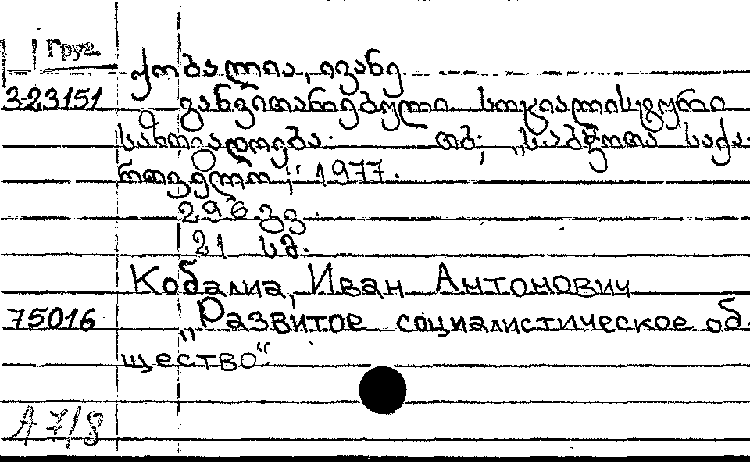 Груз
ქობალია, ივანე
3-23151 განვითარებული სოციალისტური
საზოგადოება. თბ., „საბჭოთა საქა-
რთველო", 1977.
296 გვ.
21 სმ.
Кобалиа, Иван Антонович
75016 „Развитое социалистическое об-
щество“
А 7/8